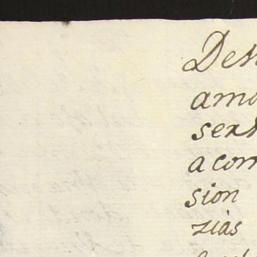 Des
amo
sex
acom
sion
zias